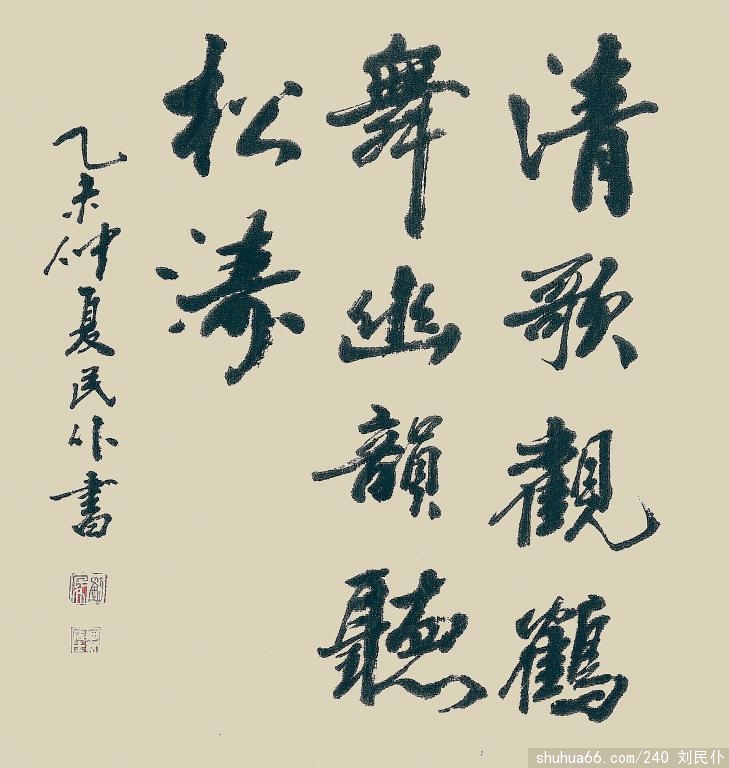 清歌觀鶴
舞幽韻聽
松濤
乙未仲夏民仆書
shuhua66.com/240 刘民仆